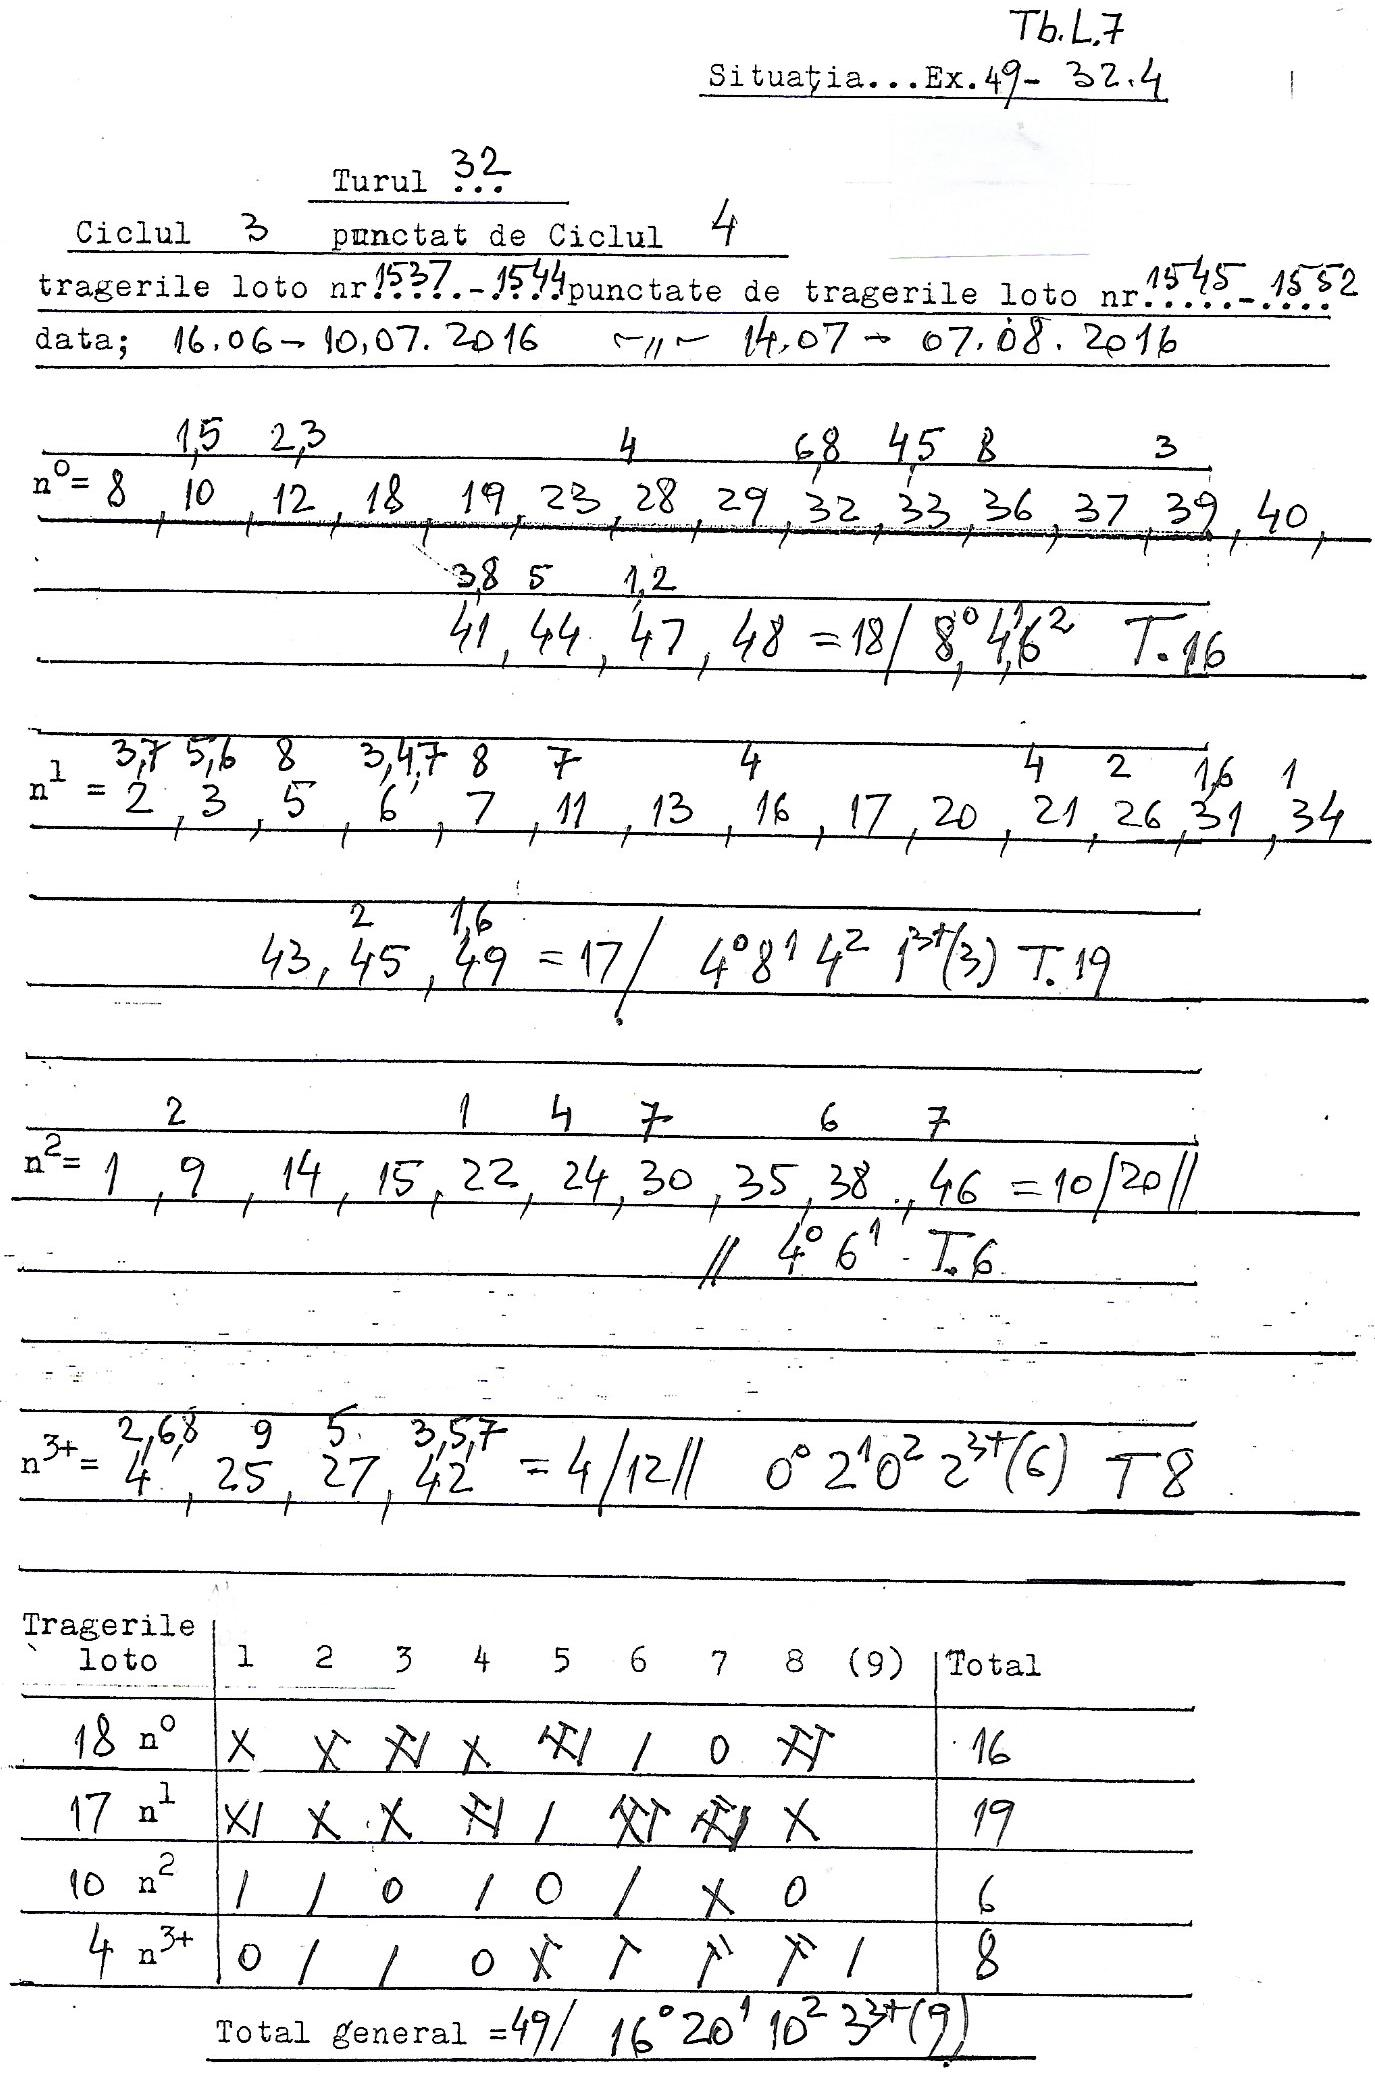 Tb.L.7
Situaţia...Ex.49- 32.4
Turul 32
Ciclul 3 punctat de Ciclul 4
tragerile loto nr.1537.-.1544 punctate de tragerile loto nr.1545-.1552
data; 16.06 - 10.07.2016 ~〃~ 14.07 - 07.08.2016
1,5 2,3 4 6,8 4,5 8 3
n⁰= 8, 10, 12, 18, 19, 23, 28, 29, 32, 33, 36, 37, 39, 40,
3,8 5 1,2
41, 44, 47, 48 = 18/ 8⁰, 4¹, 6² T.16
3,7 5,6 8 3,4,7 8 7 4 4 2 1,6 1
n¹ = 2, 3, 5, 6, 7, 11, 13, 16, 17, 20, 21, 26, 31, 34
2 1,6
43, 45, 49 = 17/ 4⁰ 8¹ 4² 1³⁺(3) T.19
2 1 4 7 6 7
n²= 1, 9, 14, 15, 22, 24, 30, 35, 38, 46 = 10/20//
// 4⁰ 6¹ T.6
2,6,8 9 5 3,5,7
n³⁺= 4, 25, 27, 42 = 4/12// 0⁰ 2¹ 0² 2³⁺(6) T 8
Tragerile
loto 1 2 3 4 5 6 7 8 (9) Total
18 n⁰ / 0 16
17 n¹ / 19
10 n² / / 0 / 0 / X 0 6
4 n³⁺ 0 / / 0 / 8
Total general =49/ 16⁰ 20¹ 10² 3³⁺(9)